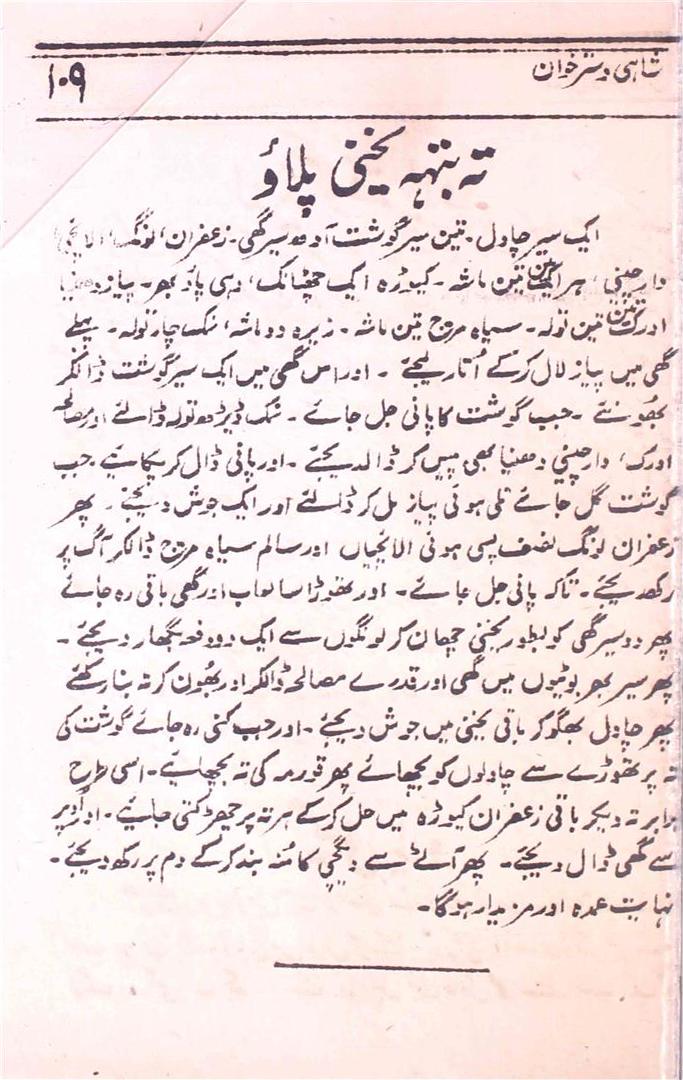 شاہی دسترخوان
۱۰۹
تہ بتہہ یخنی پلاؤ
ایک سیر چاول۔ تین سیر گوشت آدھ سیر گھی۔ زعفران، لونگ، الائچی
دارچینی، ہر ایک تین تین ماشہ۔ کیوڑہ ایک چھٹانک، دہی پاؤ بھر۔ پیاز دھنیا
ادرک تین تین تولہ۔ سیاہ مرچ تین ماشہ۔ زیرہ دو ماشہ، نمک چار تولہ۔ پہلے
گھی میں پیاز لال کرکے اُتار لیجئے۔ اور اس گھی میں ایک سیر گوشت ڈالکر
بھونئے۔ جب گوشت کا پانی جل جائے۔ نمک ڈیڑھ تولہ ڈالئے اور مصالحہ
ادرک، دارچینی دھنیا بھی پیس کر ڈالدیجئے۔ اور پانی ڈال کر پکائیے۔ جب
گوشت گل جائے تلی ہوئی پیاز مل کر ڈالئے اور ایک جوش دیجئے۔ پھر
زعفران لونگ نصف پسی ہوئی الائچیاں اور سالم سیاہ مرچ ڈالکر آگ پر
رکھدیجئے۔ تاکہ پانی جل جائے۔ اور تھوڑا سا لعاب اور گھی باقی رہ جائے
پھر دو سیر گھی کو بطور یخنی چھان کر لونگوں سے ایک دو دفعہ بگھار دیجئے۔
پھر سیر بھر بوٹیوں میں گھی اور قدرے مصالحہ ڈالکر اور بھون کر تہ بنا رکھئے
پھر چاول بھگو کر باقی یخنی میں جوش دیجئے۔ اور جب کنی رہ جائے گوشت کی
تہ پر تھوڑے سے چاولوں کو بچھائے پھر قورمہ کی تہ بچھائیے۔ اسی طرح
برابر تہ دیکر باقی زعفران کیوڑہ میں حل کرکے ہر تہ پر چھڑکتی جائیے۔ اور اوپر
سے گھی ڈال دیجئے۔ پھر آٹے سے دیگچی کا منہ بند کرکے دم پر رکھ دیجئے۔
نہایت عمدہ اور مزیدار ہوگا۔